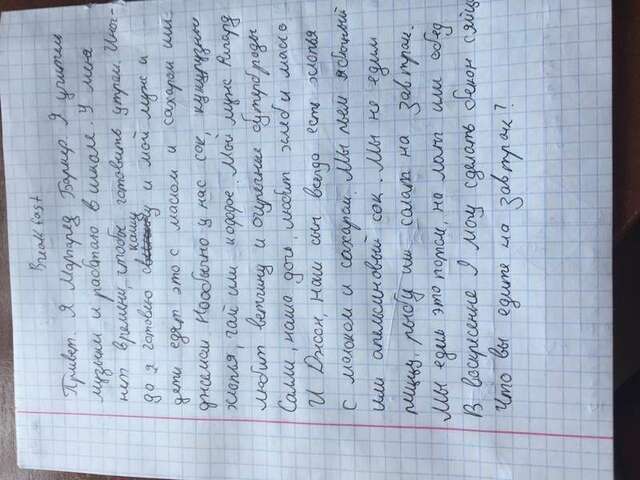 Breakfast
Привет. Я Маргаред Барнер. Я учитель
музыки и работаю в школе. У меня
нет времени, чтобы готовить утром. Иног-
да я готовлю кашу и мой муж и
дети едят это с маслом и сахаром или
джемом Наобычно у нас сок, кукурузные
хлопья, чай или коффе. Мой муж Ричард
любит ветчину и огуречные бутерброды
Салли, наша дочь, любит хлеб и масло
И Джоон, наш сын всегда ест хлопья
с молоком и сахаром. Мы пьем яблочный
или апельсиновый сок. Мы не едим
пиццу, рыбу или салата на завтрак.
Мы едим это потом, на ланч или обед
В васкресение Я могу сделать бекон с яйцо
Что вы едите на завтрак?